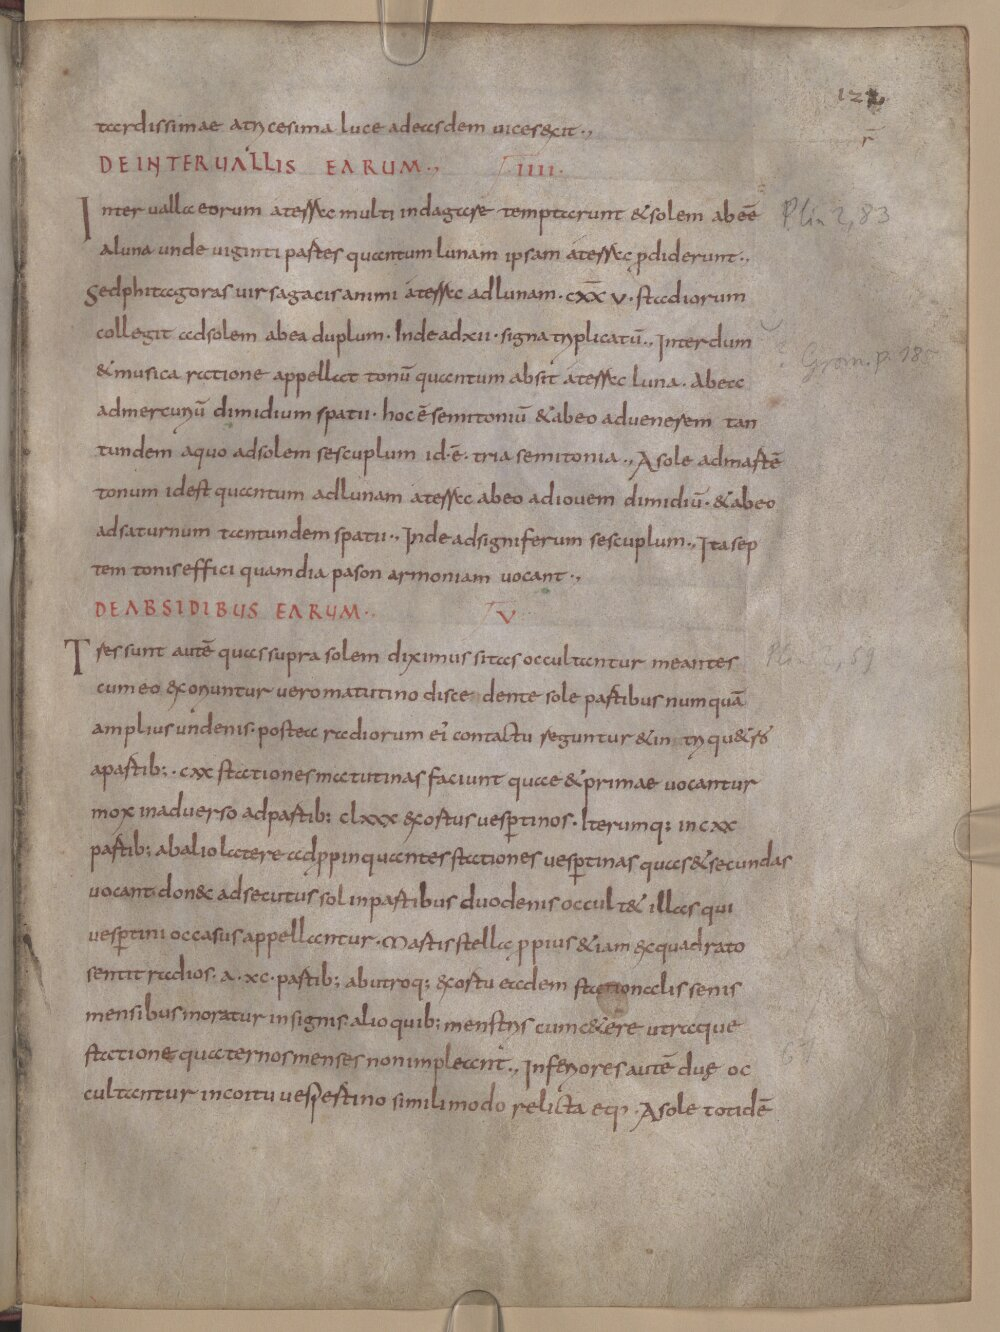 122
r̄
tardissimae a tricesima luce ad easdem vices exit.,
DE INTERUALLIS EARUM., IIII.
Inter ualla eorum a terra multi indagare temptarunt & solem abēe
a luna unde uiginti partes quantum lunam ipsam a terra p̄diderunt.,
Sed phitagoras uir sagacis animi a terra ad lunam . cxxv . stadiorum
collegit ad solem ab ea duplum . Inde ad xii . signa triplicatū., Interdum
& musica ratione appellat tonū quantum absit a terra luna . Ab ea
ad mercuriū dimidium spatii . hoc ē semitoniū & ab eo ad uenerem tan
tundem a quo ad solem sescuplum id . ē . tria semitonia., A sole ad martē
tonum id est quantum ad lunam a terra ab eo ad iouem dimidiū . & ab eo
ad saturnum tantundem spatii., Inde ad signiferum sescuplum., Ita sep
tem tonis effici quam dia pason armoniam uocant.,
DE ABSIDIBUS EARUM. V
Tres sunt autē quas supra solem diximus sitas occultantur meantes
cum eo & exoriuntur uero matutino disce dente sole partibus numquā
amplius undenis . postea radiorum ei contactu reguntur & in triqu&ro
a partib; . cxx stationes matutinas faciunt quae & primae uocantur
mox in aduerso ad partib; clxxx exortus uesꝑtinos . Iterumq; in cxx
partib; ab alio latere adp̄pinquantes stationes uesꝑtinas quas & secundas
uocant donec adsecutus sol in partibus duodenis occult& illas qui
uesꝑtini occasus appellantur . Martis stella p̄pius &iam ex quadrato
sentit radios . a . xc . partib; ab utroq; exortu eadem stationalis senis
mensibus moratur in signis . alioquib; menstris cum c&ere utraque
statione quaternos menses non impleant., Inferiores autē duę oc
cultantur in coitu uesꝑertino simili modo relicta eq; . A sole totidē
Plin 2, 83
Grom. p. 185
Plin 2, 59
61